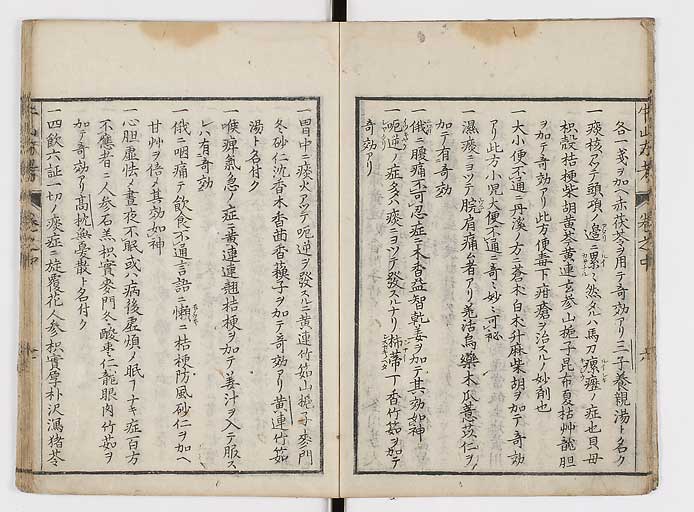 各一戔ヲ加ヘ赤茯苓ヲ用テ奇効アリ三子養親湯ト名ク
一痰核アツテ頭項ノ邉ニ累ミ然タルハ馬刀瘰癧ノ症也貝母
枳殻桔梗柴胡黄芩黄連玄参山梔子昆布夏枯艸龍胆
ヲ加テ奇効アリ此方便毒下疳瘡ヲ治スルノ妙剤也
一大小便不通ニ丹溪ノ方ニ蒼木白木升麻柴胡ヲ加テ奇効
アリ此方小児大便不通ニ奇ミ妙ミ可秘
一濕痰ニヨツテ脘肩痛ム者アリ羗活烏藥木瓜薏苡仁ヲ
加テ有奇効
一俄ニ腹痛不可忍症ニ木香益智乾姜ヲ加テ其効如神
一呃逆ノ症多ハ痰ニヨツテ發スルナリ柿蒂丁香竹茹ヲ加テ
奇効アリ
一胃中ニ痰火アツテ呃逆ヲ發スルニ黄連竹茹山梔子麥門
冬砂仁沉香木香茴香檳子ヲ加テ奇効アリ黄連竹茹
湯ト名付ク
一喉痺氣急ノ症ニ黄連連翹桔梗ヲ加ヘ姜汁ヲ入テ服ス
レハ有奇効
一俄ニ咽痛テ飲食不通言語ニ懶ニ桔梗防風砂仁ヲ加ヘ
甘艸ヲ倍ノ其効如神
一心胆虚怯ノ晝夜不眠或ハ病後虚煩ノ眠ラナキ症百方
不應者ニ人参石羔枳實麥門冬酸枣仁龍眼肉竹茹ヲ
加テ奇効アリ高枕無憂散ト名付ク
一四飲六証一切ノ痰症ニ旋覆花人参枳實厚朴沢瀉猪苓